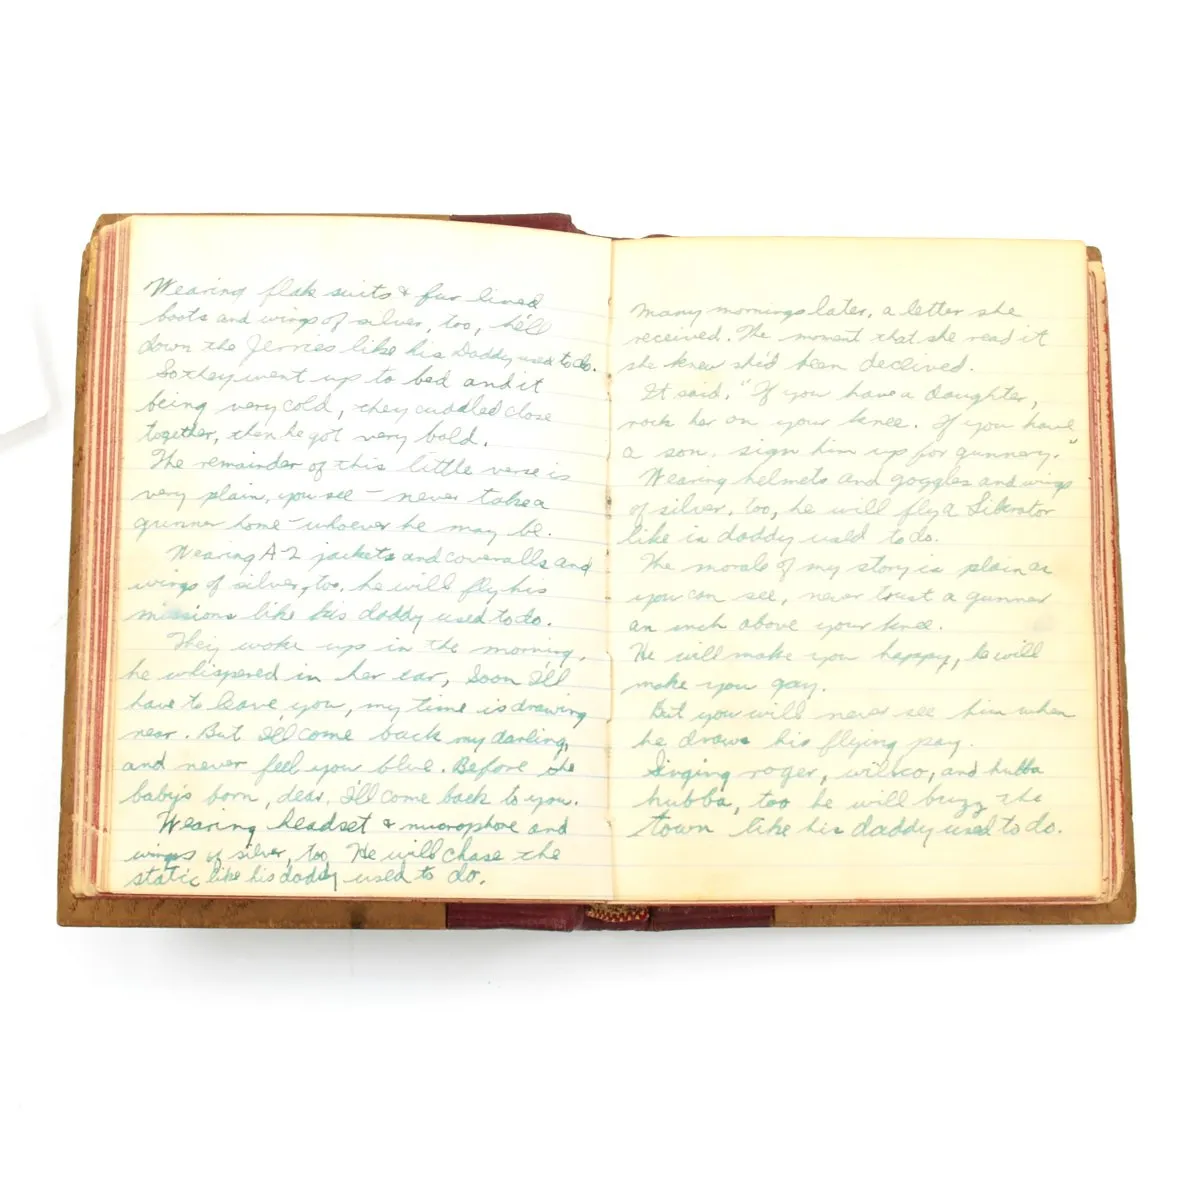 Wearing flak suits & fur lined
boots and wings of silver, too, he'll
down the Jerries like his Daddy used to do.
So they went up to bed and it
being very cold, they cuddled close
together, then he got very bold.
The remainder of this little verse is
very plain, you see – never take a
gunner home – whoever he may be.
Wearing A-2 jackets and coveralls and
wings of silver, too, he will fly his
missions like his daddy used to do.
They woke up in the morning,
he whispered in her ear, Soon I'll
have to leave you, my time is drawing
near. But I'll come back my darling,
and never feel you blue. Before the
baby's born, dear, I'll come back to you.
Wearing headset & microphone and
wings of silver, too, He will chase the
static like his daddy used to do.
Many mornings later, a letter she
received. The moment that she read it
she knew she'd been decieved.
It said, "If you have a daughter,
rock her on your knee. If you have
a son, sign him up for gunnery."
Wearing helmets and goggles and wings
of silver, too, he will fly a Liberator
like is daddy used to do.
The morals of my story is plain as
you can see, never trust a gunner
an inch above your knee.
He will make you happy, he will
make you gay.
But you will never see him when
he draws his flying pay.
Singing roger, wilco, and hubba
hubba, too he will buzz the
town like his daddy used to do.